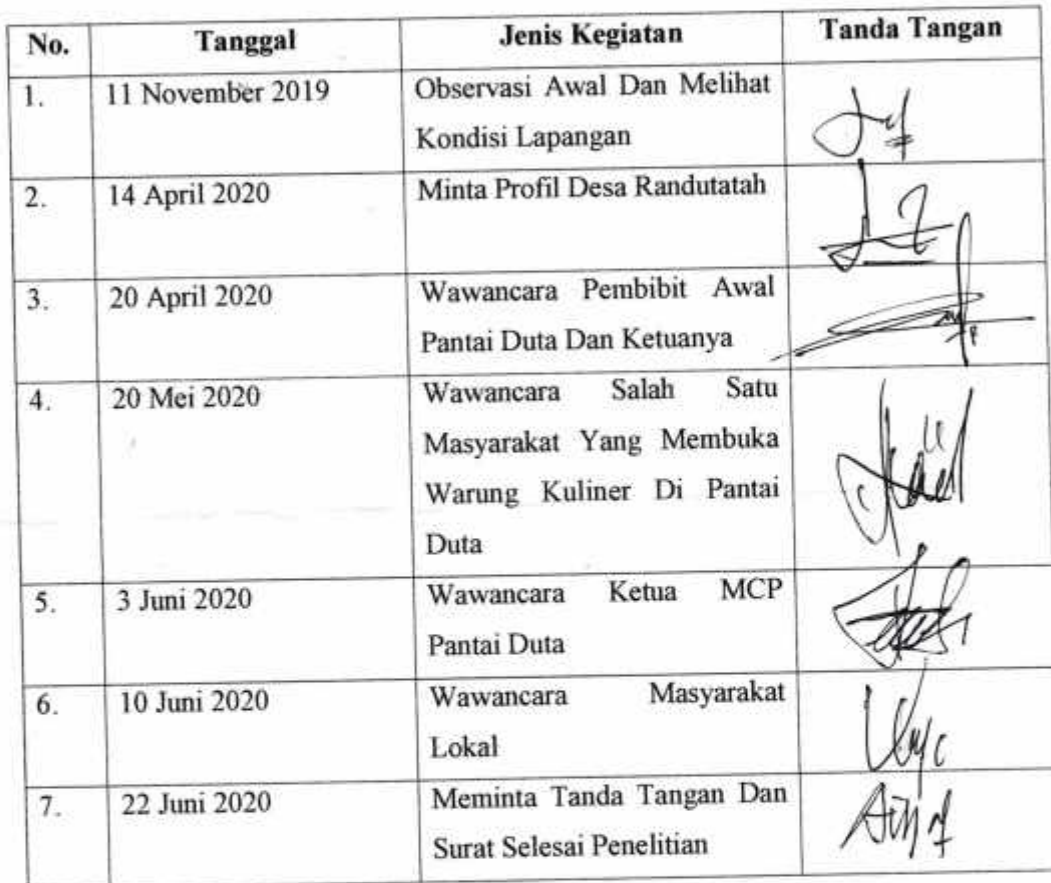 No. Tanggal Jenis Kegiatan Tanda Tangan
1. 11 November 2019 Observasi Awal Dan Melihat
Kondisi Lapangan
2. 14 April 2020 Minta Profil Desa Randutatah
3. 20 April 2020 Wawancara Pembibit Awal
Pantai Duta Dan Ketuanya
4. 20 Mei 2020 Wawancara Salah Satu
Masyarakat Yang Membuka
Warung Kuliner Di Pantai
Duta
5. 3 Juni 2020 Wawancara Ketua MCP
Pantai Duta
6. 10 Juni 2020 Wawancara Masyarakat
Lokal
7. 22 Juni 2020 Meminta Tanda Tangan Dan
Surat Selesai Penelitian